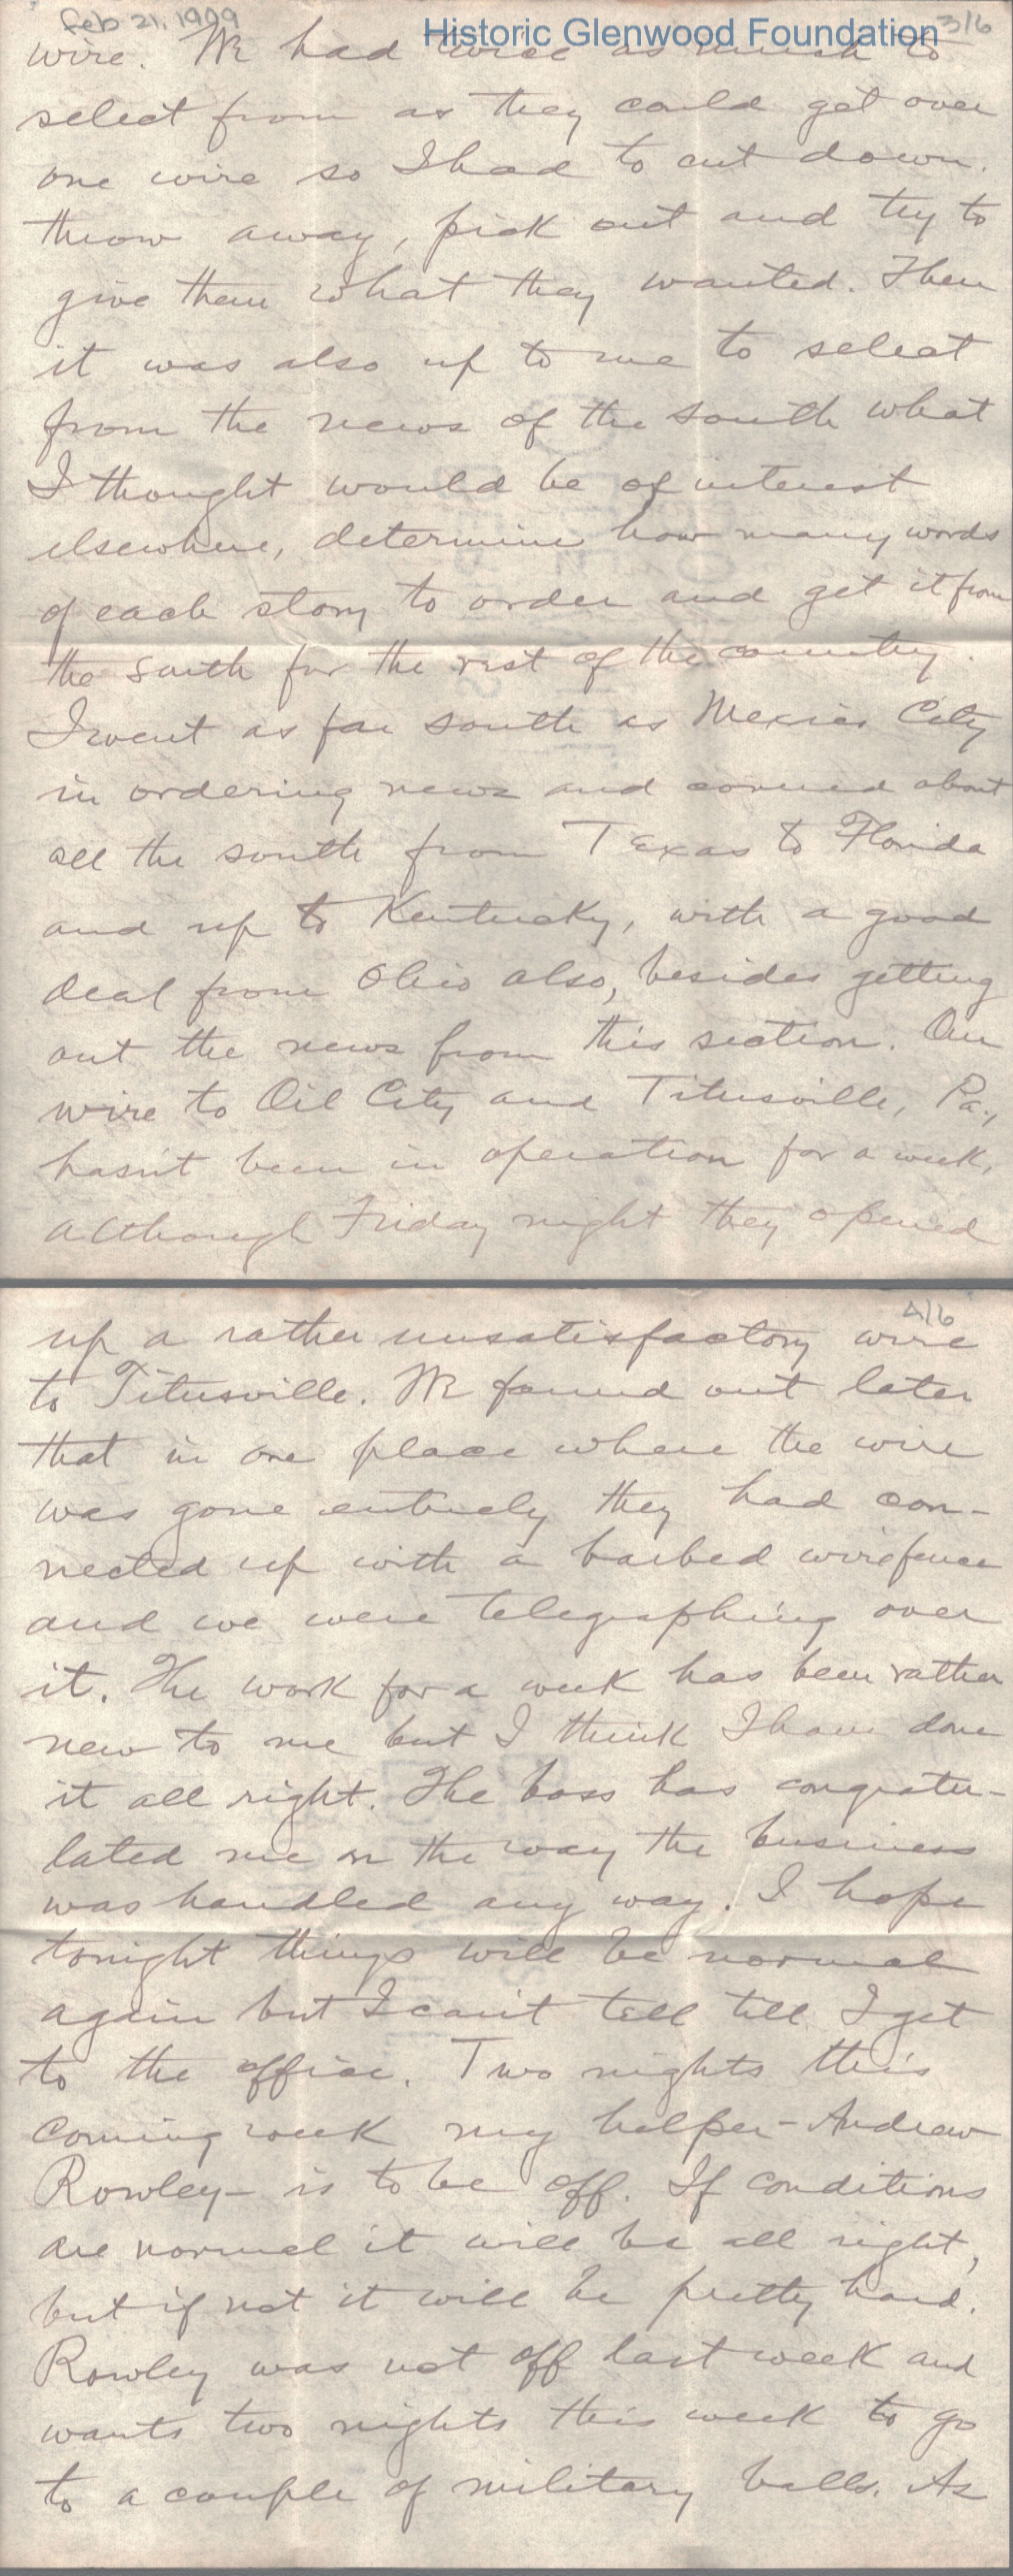 Feb 21, 1909
Historic Glenwood Foundation
3/6
wire. We had twice as much to
select from as they could get over
one wire so I had to cut down,
throw away, pick out and try to
give them what they wanted. Then
it was also up to me to select
from the news of the south what
I thought would be of interest
elsewhere, determine how many words
of each story to order and get it from
the south for the rest of the country.
I went as far south as Mexico City
in ordering news and covered about
all the south from Texas to Florida
and up to Kentucky, with a good
deal from Ohio also, besides getting
out the news from this section. Our
wire to Oil City and Titusville, Pa.,
hasn't been in operation for a week,
although Friday night they opened
4/6
up a rather unsatisfactory wire
to Titusville. We found out later
that in one place where the wire
was gone entirely they had con-
nected up with a barbed wire fence
and we were telegraphing over
it. The work for a week has been rather
new to me but I think I have done
it all right. The boss has congratu-
lated me on the way the business
was handled any way. I hope
tonight things will be normal
again but I can't tell till I get
to the office. Two nights this
coming week my helper - Andrew
Rowley - is to be off. If conditions
are normal it will be all right,
but if not it will be pretty hard.
Rowley was not off last week and
wants two nights this week to go
to a couple of military balls. As